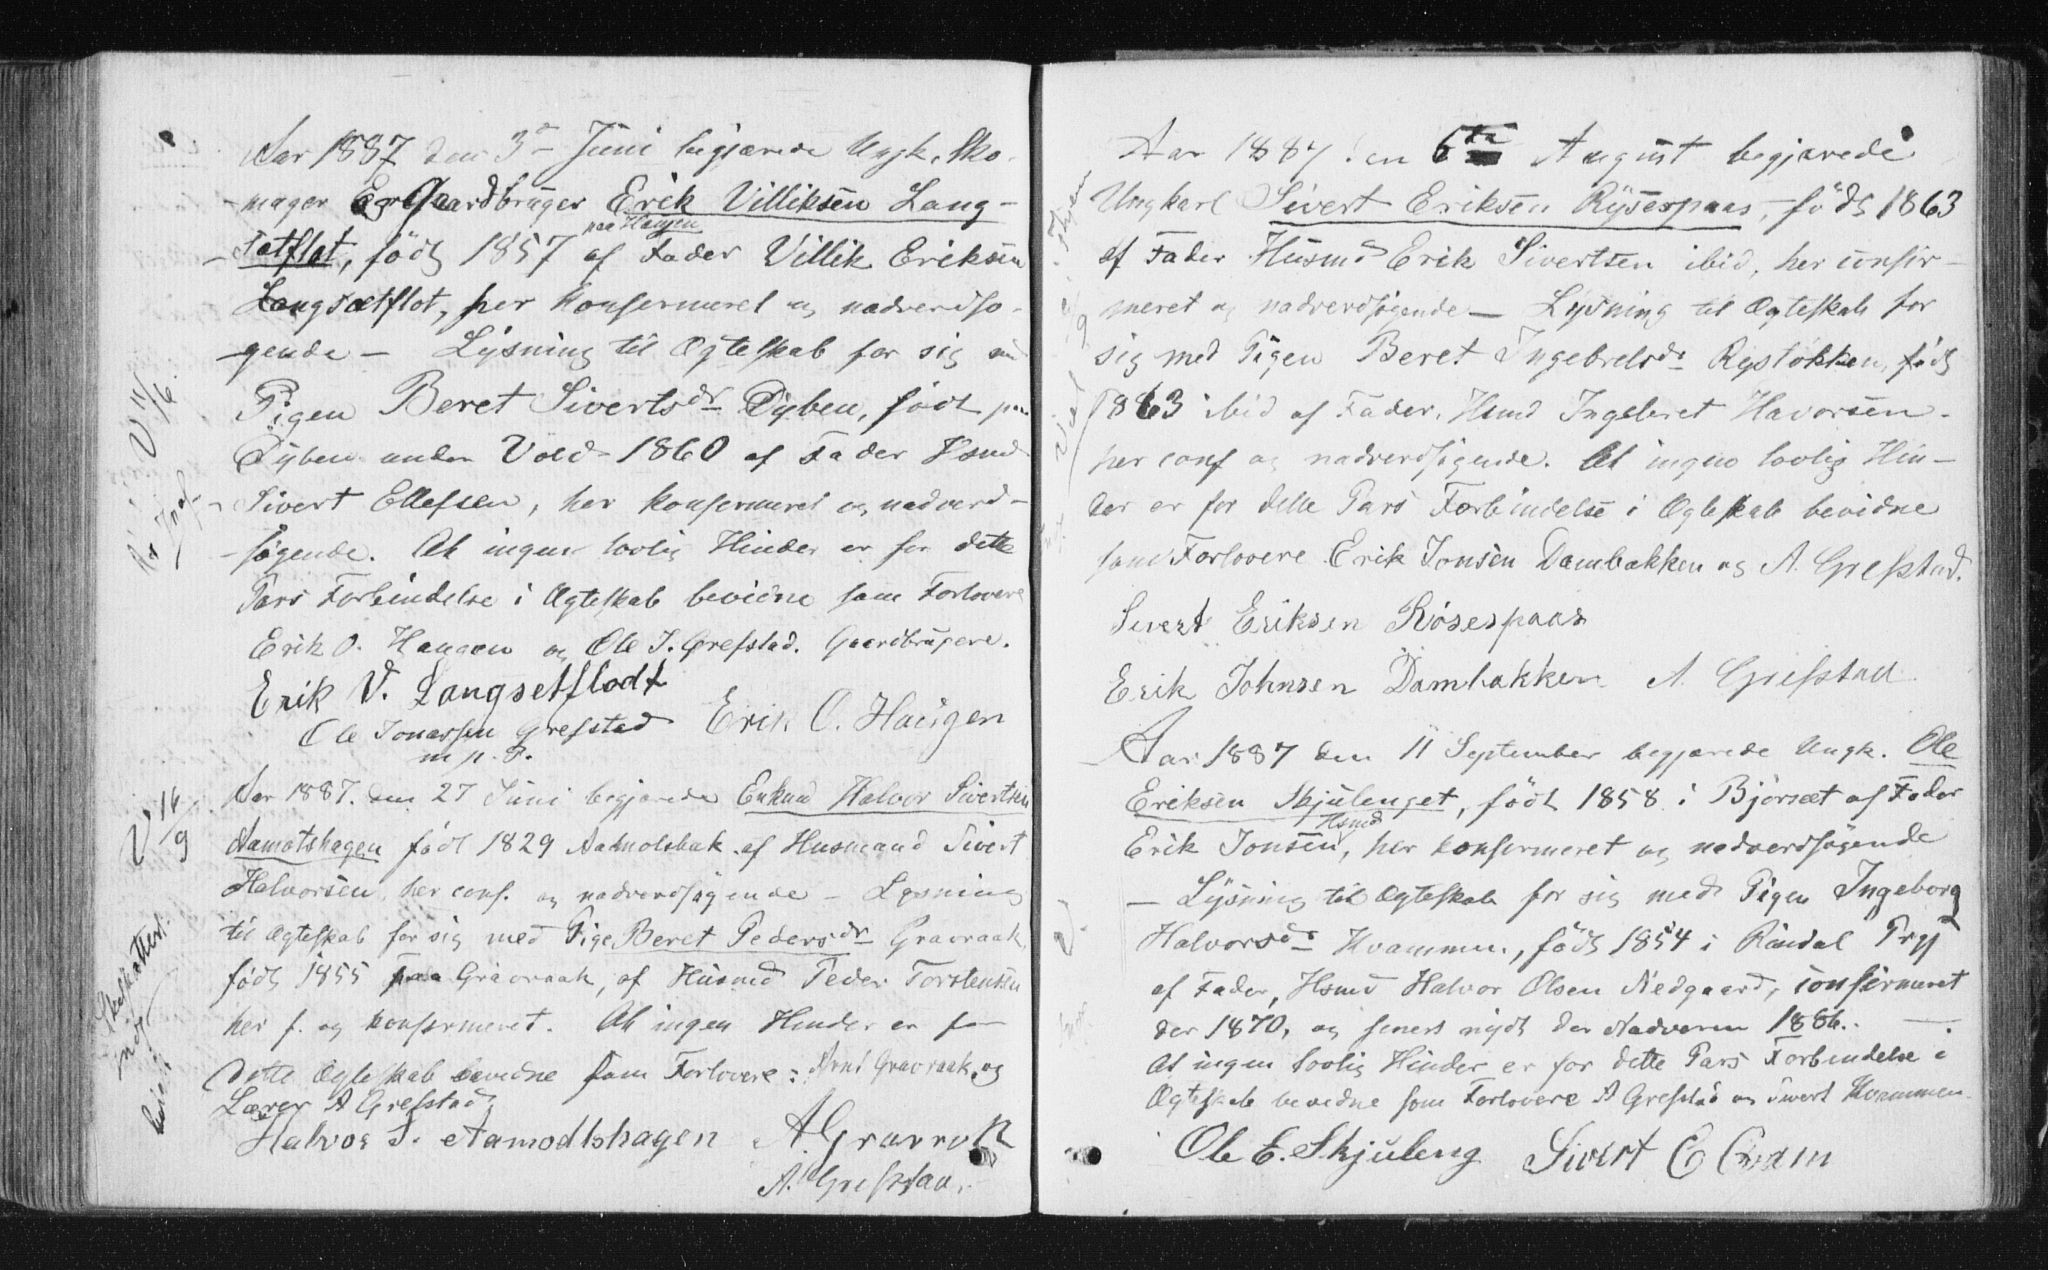 Aar 1887 den 3d Juni begjærede Ungk. Sko-
mager og Gaardbruger Erik Villiksen Lang-
paa Haugen
sætflot, født 1857 af Fader Villik Eriksen
Langsætflot, her konfermeret og nadverdsø-
gende — Lysning til Ægteskab for sig med
Pigen Beret Sivertsdr Dyben, født paa
Dyben under Vold 1860 af Fader Hsmd
Sivert Ellefsen, her konfermeret og nadverd-
søgende. At ingen lovlig Hinder er for dette
Pars Forbindelse i Ægteskab bevidne som Forlovere
Erik O. Haugen og Ole J. Grefstad. Gaardbrugere.
Erik V. Langsetflodt
Ole Jonassen Grefstad Erik O. Haugen
m. p. P.
V 11/6.
Aar 1887. den 27 Juni begjærede Enkmd Halvor Sivertsen
Aamotshagen født 1829 Aamotsbak. af Husmand Sivert
Halvorsen, her conf. og nadverdsøgende — Lysning
til Ægteskab for sig med Pige Beret Pedersdr Gravraak
født 1855 paa Gravraak, af Husmd Peder Torstensen
her f. og konfermeret. At ingen Hinder er for
dette Ægteskab bevidne som Forlovere: Arnt Gravraak og
Lærer A Grefstad
Halvor S. Aamodtshagen A. Gravrok
A. Grefstad.
V 16/9
Skofsatter.
Aar 1887 den 6te August begjærede
Ungkarl Sivert Eriksen Rysespaas, født 1863
af Fader Husmd Erik Sivertsen ibid, her confir-
meret og nadverdsøgende — Lysning til Ægteskab for
sig med Pigen Beret Ingebretsdr Rystøkken, født
1863 ibid af Fader, Hsmd Ingebret Havorsen.
her conf og nadverdsøgende. At ingen lovlig Hin-
der er for dette Pars Forbindelse i Ægteskab bevidne
som Forlovere Erik Jonsen Dambakken og A. Grefstad.
Sivert Eriksen Røsespaas
Erik Johnsen Dambakken A. Grefstad
Aar 1887 den 11 September begjærede Ungk. Ole
Eriksen Skjulenget, født 1858 i Bjørset af Fader
Hsmd
Erik Jonsen, her konfermeret og nadverdsøgende
— Lysning til Ægteskab for sig med Pigen Ingeborg
Halvorsdr Kvammen, født 1854 i Rindal Prgj
af Fader, Hsmd Halvor Olsen Nedgaard, confirmeret
der 1870, og senest nydt der Nadveren 1886. —.
At ingen lovlig Hinder er for dette Pars Forbindelse i
Ægteskab bevidne som Forlovere A Grefstad og Sivert Kvammen.
Ole E. Skjuleng Sivert E Qvam
V.